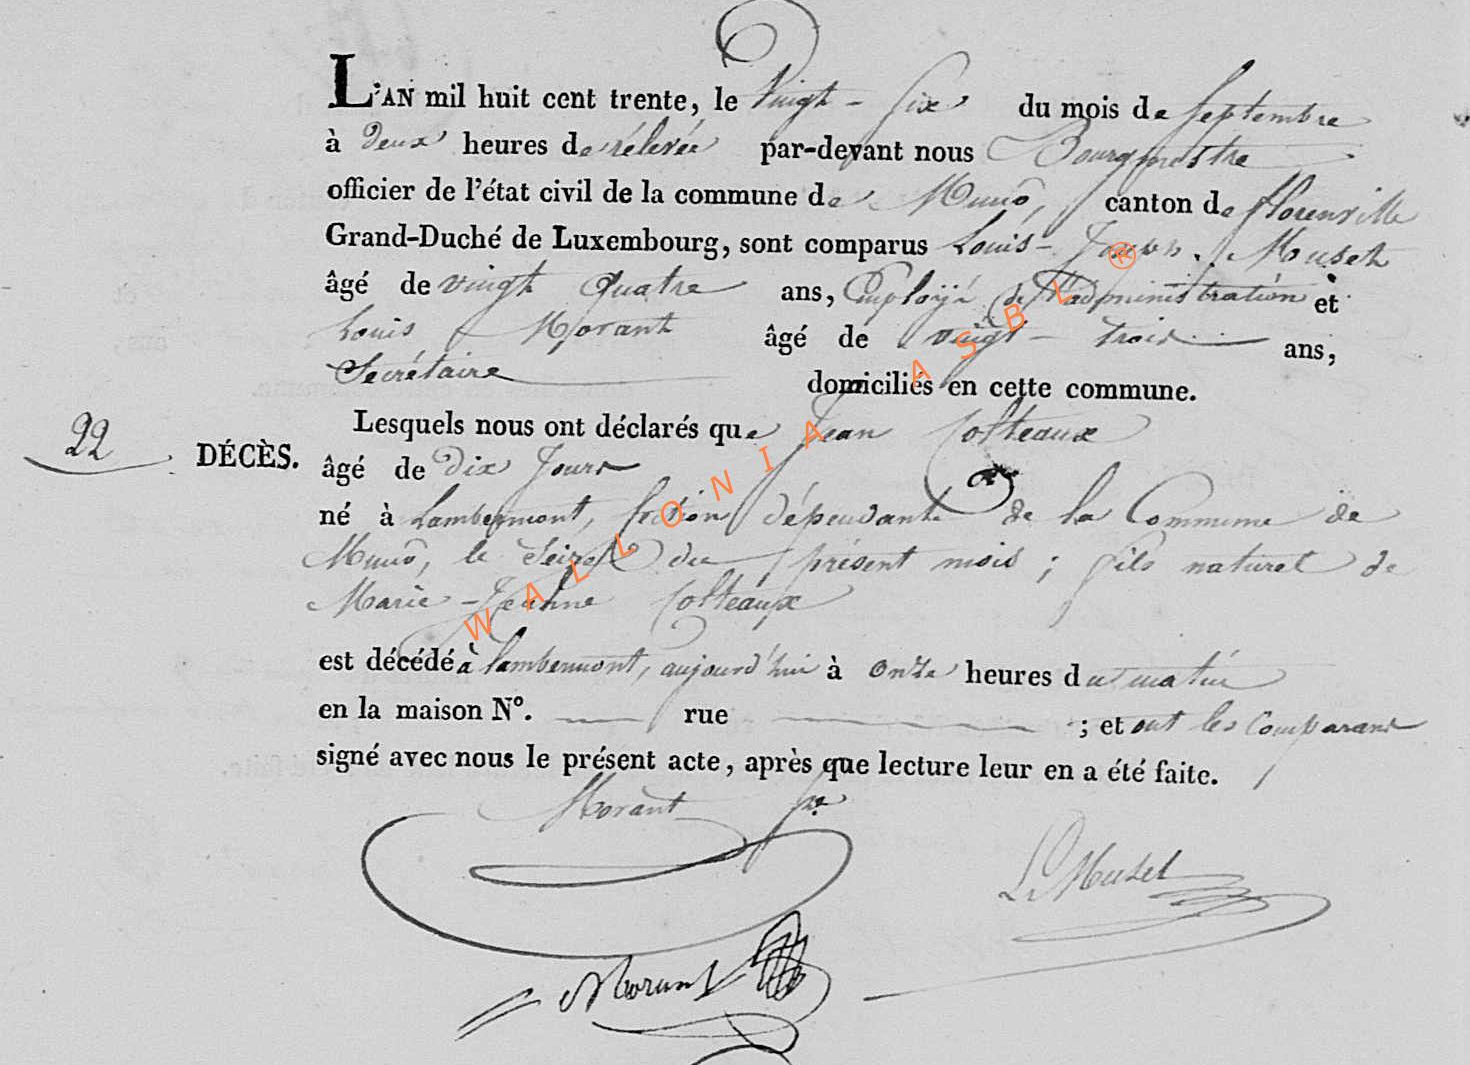 L'AN mil huit cent trente, le Vingt - Six du mois de Septembre
à Deux heures de rélevée par-devant nous Bourgmestre
officier de l'état civil de la commune de Muno, canton de florenville
Grand-Duché de Luxembourg, sont comparus Louis - Joseph Muset
âgé de vingt Quatre ans, Employé de l'administration et
Louis Morant âgé de vingt - trois ans,
Secrétaire domiciliés en cette commune.
Lesquels nous ont déclarés que Jean Colteaux
22 DÉCÈS. âgé de Dix Jours
né à Lambermont, section dépendante de la Commune de
Muno, le Seize du présent mois ; fils naturel de
Marie - Jeanne Colteaux
est décédé à Lambermont, aujourd'hui à onze heures du matin
en la maison N°. rue ; et ont les Comparans
signé avec nous le présent acte, après que lecture leur en a été faite.
Morant
L. Muset
Morant
WALLONIA ASBL ®